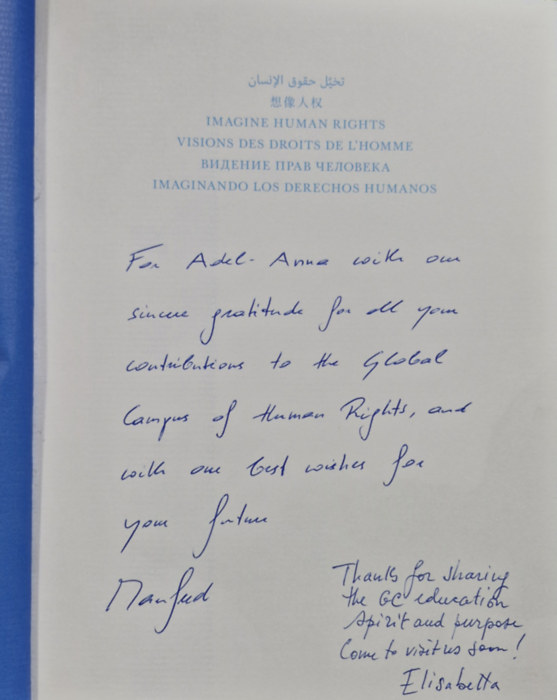 تخيّل حقوق الإنسان
想像人权
IMAGINE HUMAN RIGHTS
VISIONS DES DROITS DE L'HOMME
ВИДЕНИЕ ПРАВ ЧЕЛОВЕКА
IMAGINANDO LOS DERECHOS HUMANOS
For Adel-Anna with our
sincere gratitude for all your
contributions to the Global
Campus of Human Rights, and
with our best wishes for
your future
Manfred
Thanks for sharing
the GC education
spirit and purpose
Come to visit us soon!
Elisabetta